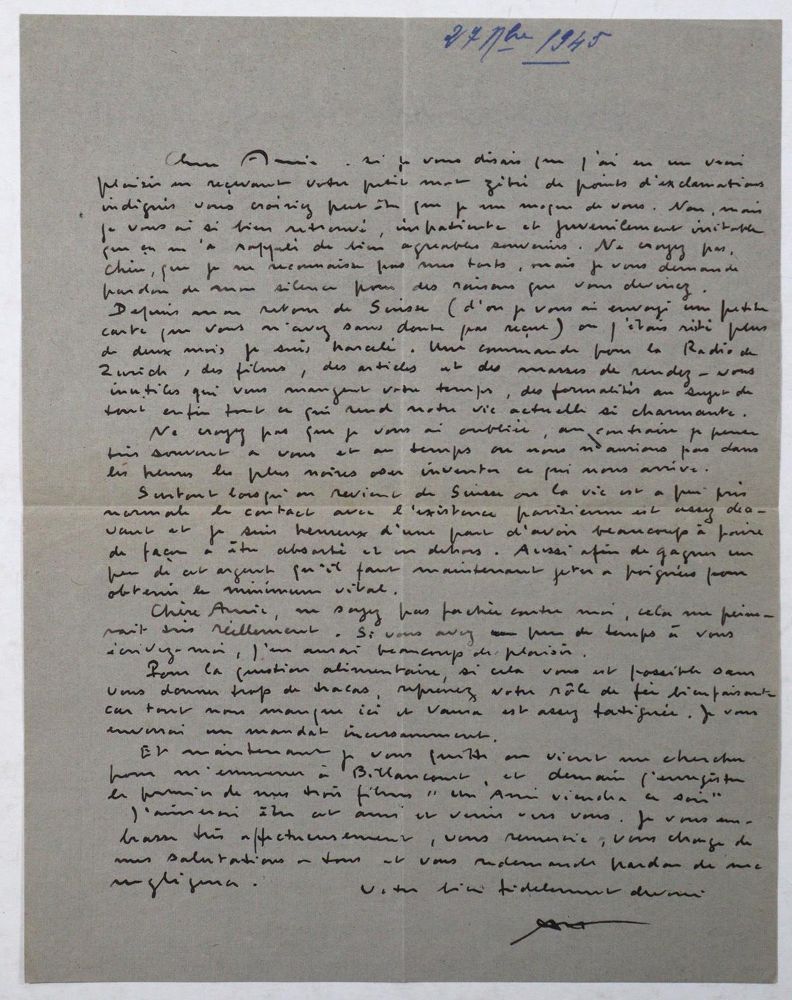 27 Nbre 1945
Chère Annie. si je vous disais que j'ai eu un vrai
plaisir en recevant votre petit mot zébré de points d'exclamations
indignés vous croiriez peut être que je me moque de vous. Non, mais
je vous ai si bien retrouvé, impatiente et juvenilement irritable
que ça m'a rappelé de bien agréables souvenirs. Ne croyez pas,
chère, que je ne reconnaisse pas mes torts, mais je vous demande
pardon de mon silence pour des raisons que vous devinez.
Depuis mon retour de Suisse (d'où je vous ai envoyé une petite
carte que vous n'avez sans doute pas reçue) où j'étais resté plus
de deux mois je suis harcelé. Une commande pour la Radio de
Zurich, des films, des articles et des masses de rendez-vous
inutiles qui vous mangent votre temps, des formalités au sujet de
tout enfin tout ce qui rend notre vie actuelle si charmante.
Ne croyez pas que je vous ai oubliée, au contraire je pense
très souvent a vous et au temps ou nous n'aurions pas dans
les heures les plus noires oser inventer ce qui nous arrive.
Surtout lorsqu'on revient de Suisse ou la vie est a peu près
normale le contact avec l'existence parisienne est assez déce-
vant et je suis heureux d'une part d'avoir beaucoup à faire
de façon a être absorbé et en dehors. Aussi afin de gagner un
peu de cet argent qu'il faut maintenant jeter a poignées pour
obtenir le minimum vital.
Chère Annie, ne soyez pas fachée contre moi, cela me pein-
rait très réellement. Si vous avez un peu de temps à vous
écrivez-moi, j'en aurai beaucoup de plaisir.
Pour la question alimentaire, si cela vous est possible sans
vous donner trop de tracas, reprenez votre rôle de fée bienfaisante
car tout nous manque ici et est assez fatiguée. Je vous
enverrai un mandat incessamment.
Et maintenant je vous quitte on vient me chercher
pour m'emmener à Billancourt, et demain j'enregistre
le premier de mes trois films "Un Ami viendra ce soir"
J'aimerai être cet ami et venir vers vous. Je vous em-
brasse très affectueusement, vous remercie, vous charge de
mes salutations a tous et vous redemande pardon de ma
negligence. Votre bien fidelement devoué